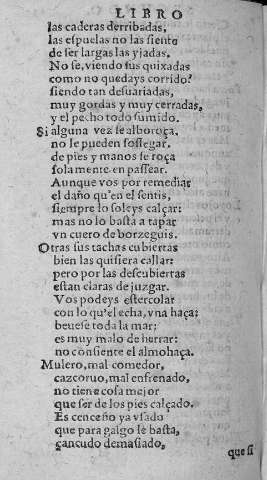 LIBRO
las caderas derribadas,
las espuelas no las siente
de ser largas las yjadas.
No se, viendo sus quixadas
como no quedays corrido?
siendo tan desuariadas,
muy gordas y muy cerradas,
y el pecho todo sumido.
Si alguna vez se alboroça,
no le pueden sossegar.
de pies y manos se roça
solamente en passear.
Aunque vos por remediar
el daño qu'en el sentis,
siempre lo soleys calçar:
mas no lo basta a tapar
vn cuero de borzeguis.
Otras sus tachas cubiertas
bien las quisiera callar:
pero por las descubiertas
estan claras de juzgar.
Vos podeys estercolar
con lo qu'el echa, vna haça;
beuese toda la mar;
es muy malo de herrar:
no consiente el almohaça.
Mulero, mal comedor,
cazcoruo, mal enfrenado,
no tiene cosa mejor
que ser de los pies calçado.
Es cenceño ya vsado
que para galgo le basta,
çancudo demasiado,
que si